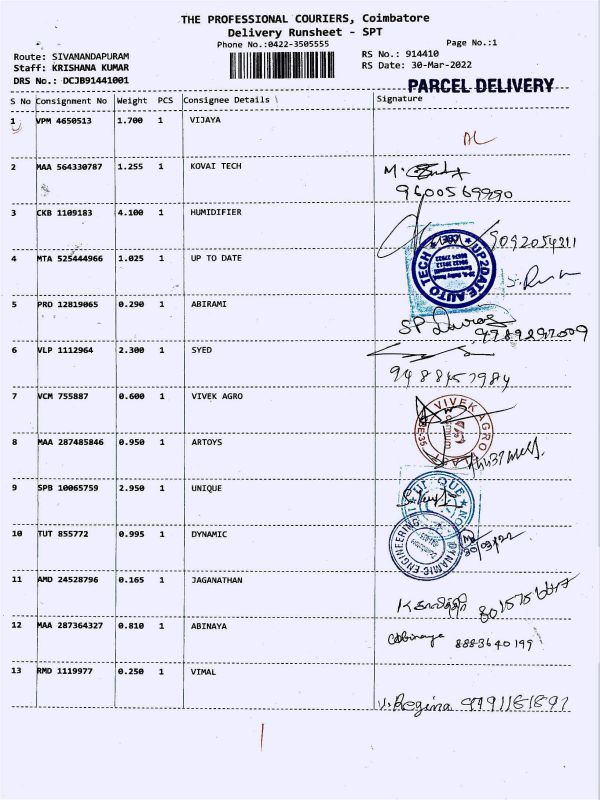 THE PROFESSIONAL COURIERS, Coimbatore
Delivery Runsheet - SPT
Phone No.:0422-3505555
Page No.:1
Route: SIVANANDAPURAM
RS No.: 914410
Staff: KRISHANA KUMAR
RS Date: 30-Mar-2022
DRS No.: DCJB91441001
PARCEL DELIVERY
S No Consignment No Weight PCS Consignee Details Signature
1 VPM 4650513 1.700 1 VIJAYA
2 MAA 564330787 1.255 1 KOVAI TECH
9600569990
3 CKB 1109183 4.100 1 HUMIDIFIER
9092054311
4 MTA 525444966 1.025 1 UP TO DATE
UP2DATE AUTO TECH
5 PRO 12819065 0.290 1 ABIRAMI
SP
9789292009
6 VLP 1112964 2.300 1 SYED
9488457984
7 VCM 755887 0.600 1 VIVEK AGRO
VIVEK AGRO
8 MAA 287485846 0.950 1 ARTOYS
9 SPB 10065759 2.950 1 UNIQUE
10 TUT 855772 0.995 1 DYNAMIC
DYNAMIC ENGINEERING
11 AMD 24528796 0.165 1 JAGANATHAN
12 MAA 287364327 0.810 1 ABINAYA
Abinaya 8883640199
13 RMD 1119977 0.250 1 VIMAL
V. Regina